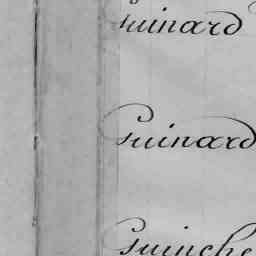 Guinard
Guinard
Guinche